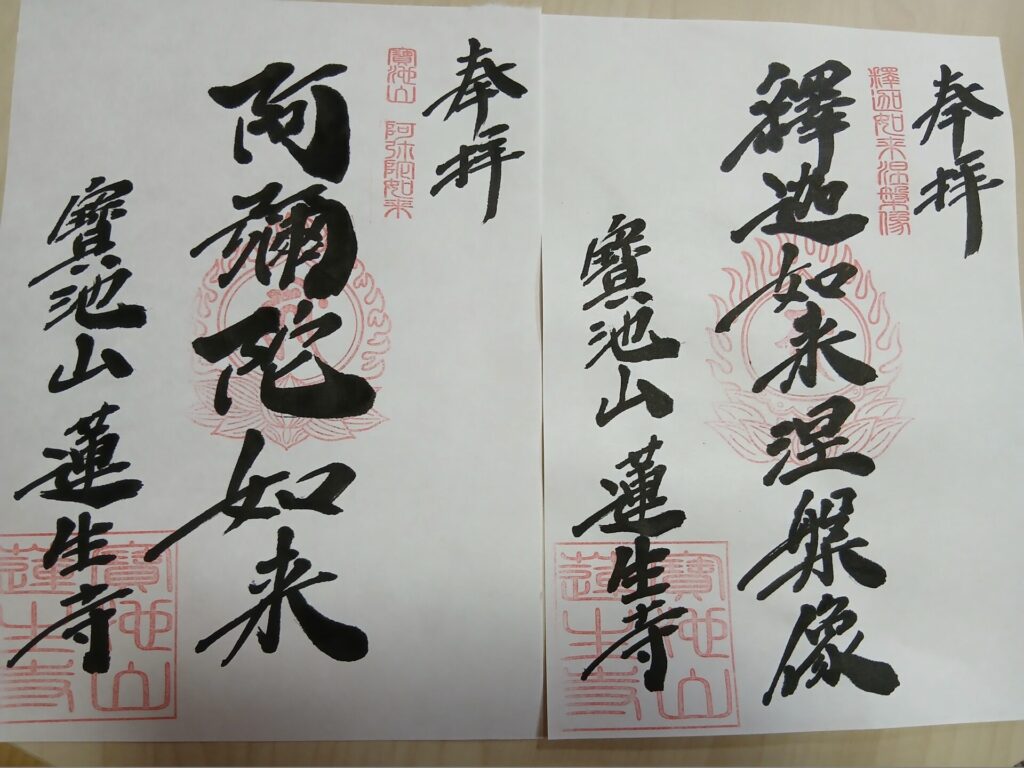 奉拝
釋迦如来涅槃像
釋迦如来涅槃像
寶池山 蓮生寺
寶池山
蓮生寺
奉拝
寶池山 阿弥陀如来
阿彌陀如来
寶池山 蓮生寺
寶池山
蓮生寺